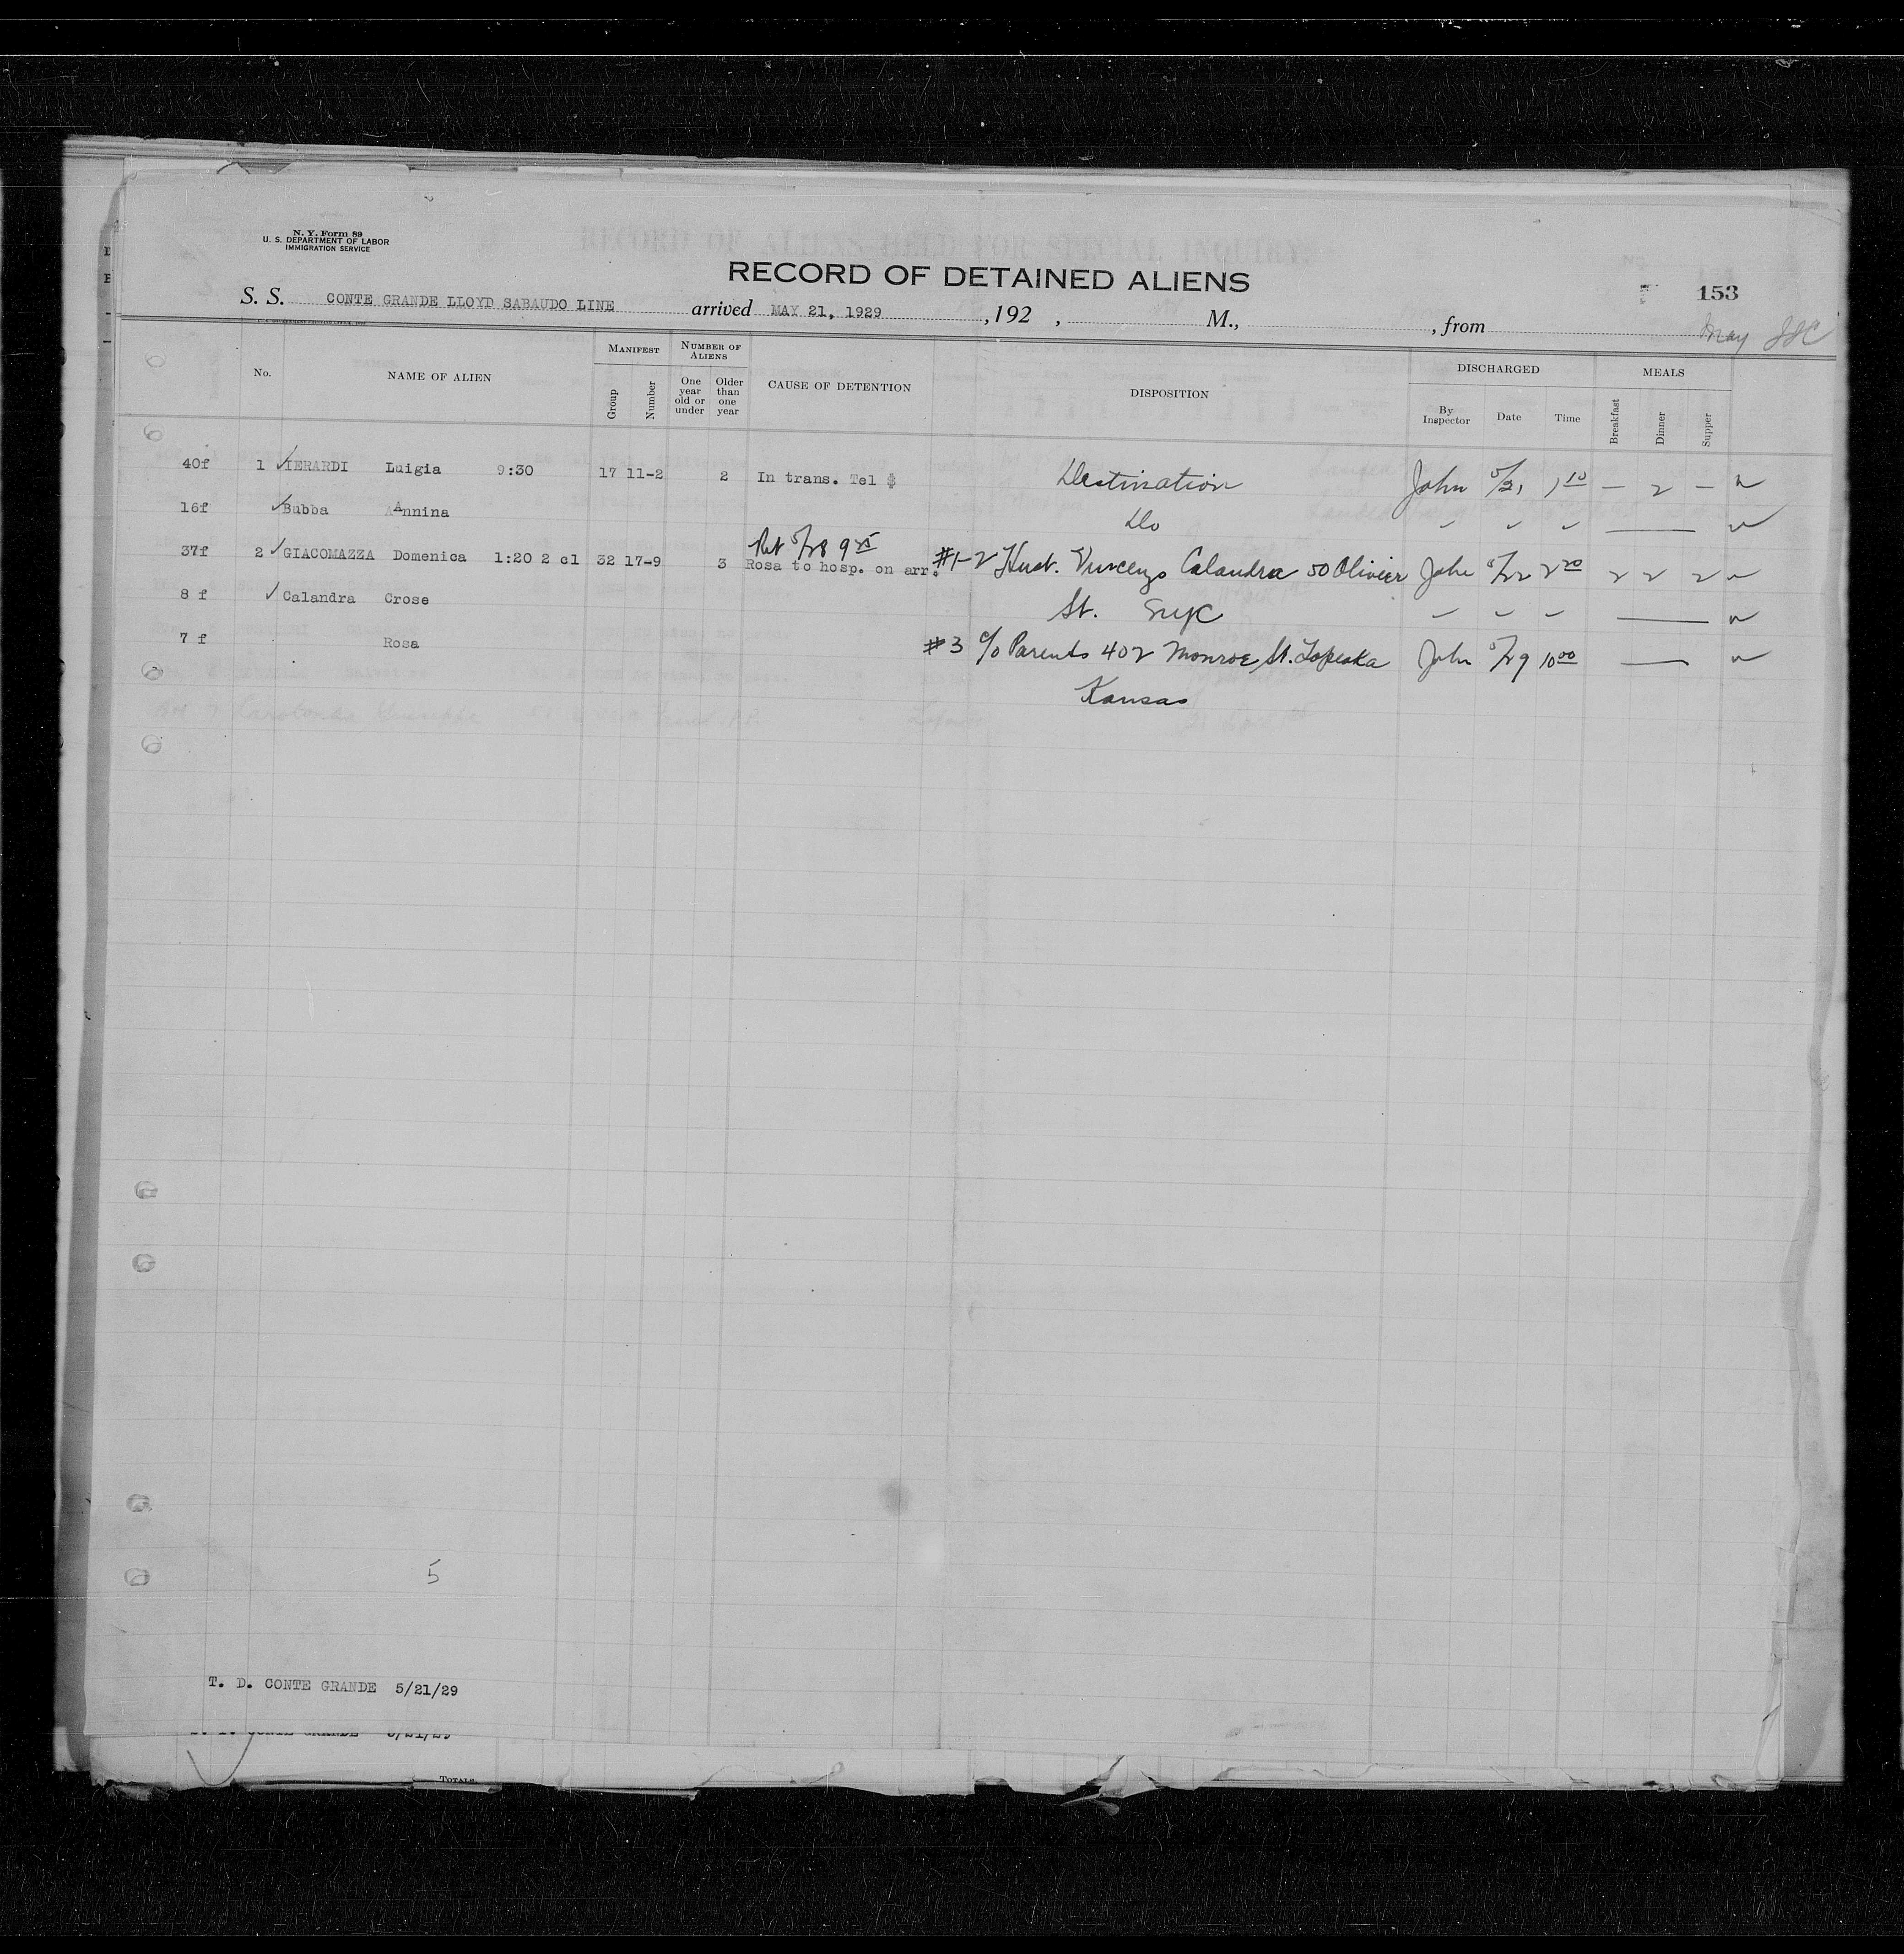 N. Y. Form 89
U. S. DEPARTMENT OF LABOR
IMMIGRATION SERVICE
RECORD OF DETAINED ALIENS
153
S. S. CONTE GRANDE LLOYD SABAUDO LINE arrived MAY 21, 1929 , 192 , M., , from
May
No. NAME OF ALIEN MANIFEST Group Number NUMBER OF ALIENS One year old or under Older than one year CAUSE OF DETENTION DISPOSITION DISCHARGED By Inspector Date Time MEALS Breakfast Dinner Supper
40f 1 ✓ IERARDI Luigia 9:30 17 11-2 2 In trans. Tel $ Destination John 5/21 1 10 — 2 —
16f ✓ Bubba Annina Do
Ret 5/28 9 45
37f 2 ✓ GIACOMAZZA Domenica 1:20 2 cl 32 17-9 3 Rosa to hosp. on arr. #1-2 Husb. Vincenzo Calandra 50 Olivier John 5/22 2 20 2 2 2
8 f ✓ Calandra Crose St. NYC
7 f Rosa #3 c/o Parents 402 Monroe St. Topeaka John 5/29 10 00
Kansas
5
T. D. CONTE GRANDE 5/21/29
CONTE GRANDE 5/21/29
TOTALS